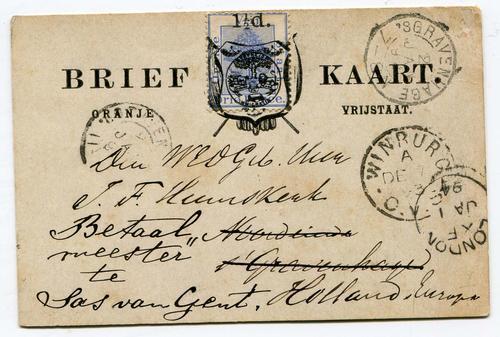 1½d.
BRIEF KAART.
ORANJE VRIJSTAAT.
'SGRAVENHAGE
WINBURG
A
DE
O.
LONDON
X F
JA 1
94
Den WEDGeb. Heer
J. F. Heemskerk
Betaal
meester"
te 's Gravenhage
Sas van Gent, Holland, Europa